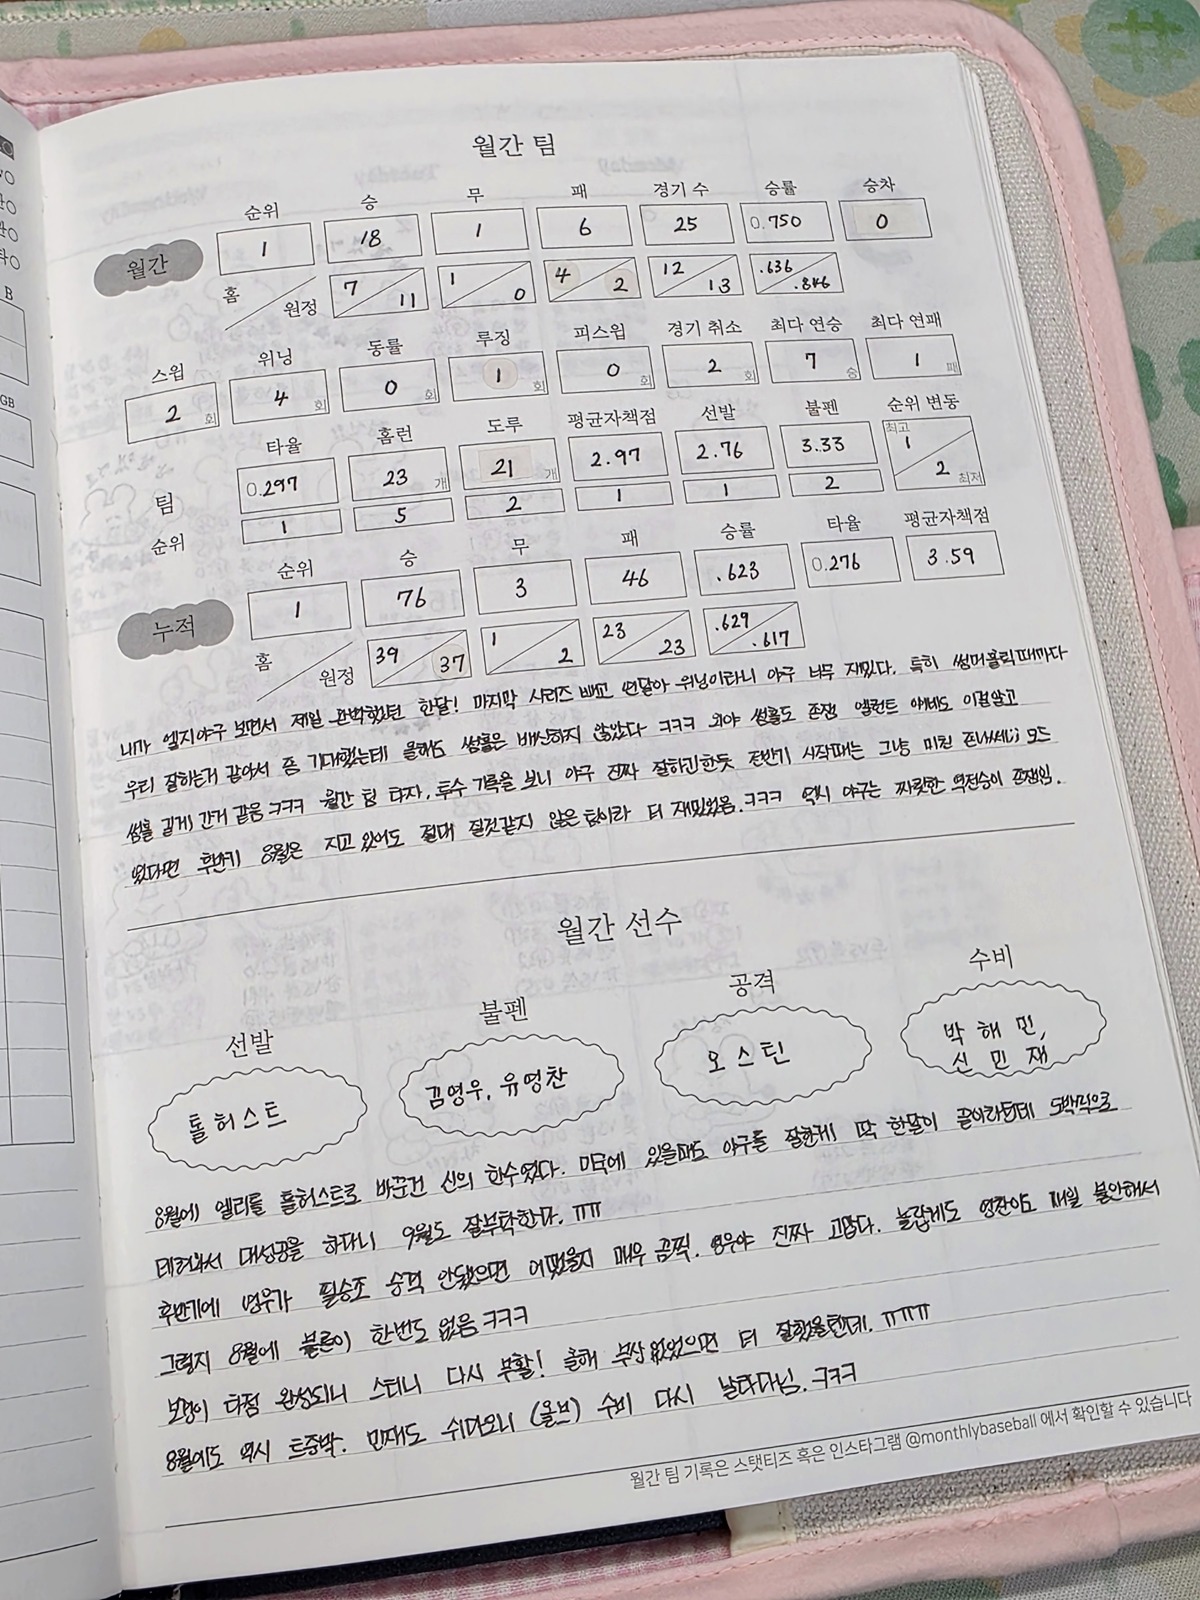 월간 팀
순위 승 무 패 경기 수 승률 승차
월간 1 18 1 6 25 0.750 0
홈 / 원정 7 / 11 1 / 0 4 / 2 12 / 13 .636 / .846
스윕 위닝 동률 루징 피스윕 경기 취소 최다 연승 최다 연패
2 회 4 회 0 회 1 회 0 회 2 회 7 승 1 패
타율 홈런 도루 평균자책점 선발 불펜 순위 변동
팀 0.297 23 개 21 개 2.97 2.76 3.33 최고 1 / 2 최저
순위 1 5 2 1 1 2
순위 승 무 패 승률 타율 평균자책점
누적 1 76 3 46 .623 0.276 3.59
홈 / 원정 39 / 37 1 / 2 23 / 23 .629 / .617
내가 엘지야구 보면서 제일 완벽했던 한달! 마지막 시리즈 빼고 연달아 위닝이라니 야구 너무 재밌다. 특히 썸머홀릭때마다
우리 잘하는거 같아서 좀 기대했는데 올해도 썸홀은 배신하지 않았다 ㅋㅋㅋ 외야 썸홀도 존잼 엘런트 얘네도 이길알고
썸홀 길게 간거 같음 ㅋㅋㅋ 월간 팀 타자, 투수 기록을 보니 야구 진짜 잘하긴한듯 전반기 시작때는 그냥 미친 존나쎄;; 모드
였다면 후반기 8월은 지고 있어도 절대 질것같지 않은 팀이라 더 재밌었음. ㅋㅋㅋ 역시 야구는 짜릿한 역전승이 존잼임.
월간 선수
선발 불펜 공격 수비
톨허스트 김영우, 유영찬 오스틴 박해민,
신민재
8월에 엘리를 톨허스트로 바꾼건 신의 한수였다. 미국에 있을때도 야구를 잘한게 딱 한달이 끝이라던데 도박적으로
데려와서 대성공을 하다니 9월도 잘부탁한다. ㅠㅠ
후반기에 영우가 필승조 승격 안됐으면 어땠을지 매우 끔찍. 영우야 진짜 고맙다. 놀랍게도 영찬이도 매일 불안해서
그렇지 8월에 블론이 한번도 없음 ㅋㅋㅋ
보경이 타점 완성되니 스티니 다시 부활! 올해 부상 없었으면 더 잘했을텐데. ㅠㅠㅠ
8월에도 역시 트중박. 민재도 쉬다오니 (올브) 수비 다시 날라다님. ㅋㅋㅋ
월간 팀 기록은 스탯티즈 혹은 인스타그램 @monthlybaseball 에서 확인할 수 있습니다